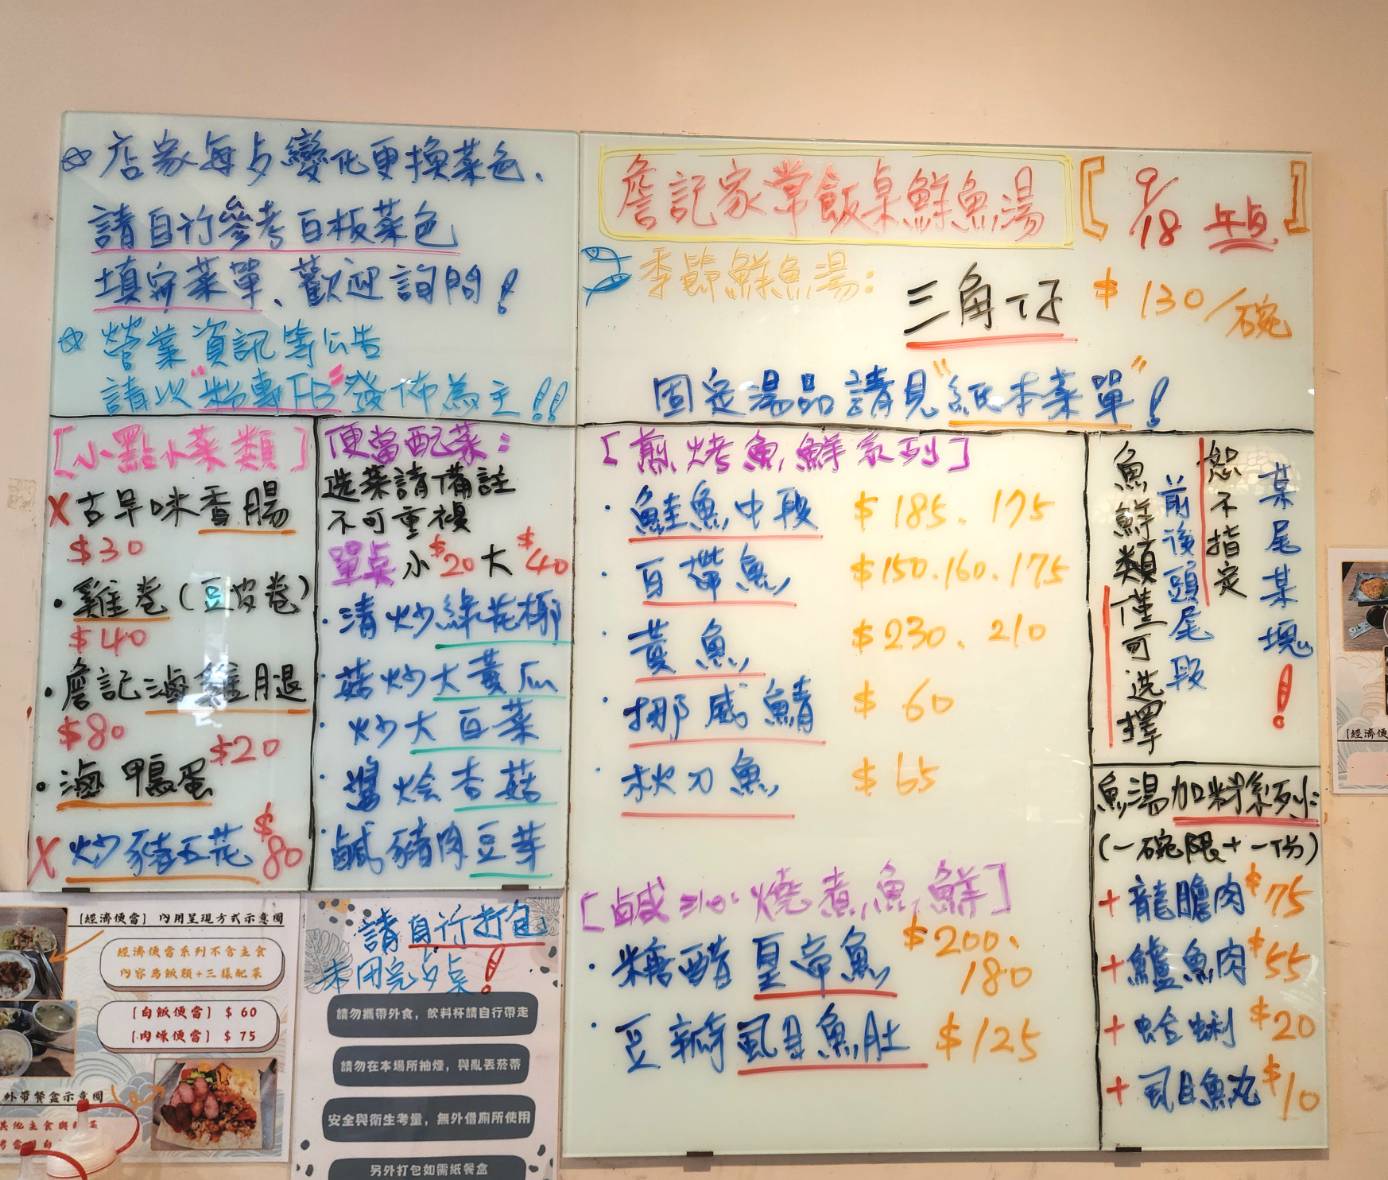 店家每夕變化更換菜色、
請自行參考白板菜色
填寫菜單、歡迎詢問！
營業資訊等公告
請以"粉專FB"發佈為主!!
詹記家常飯桌鮮魚湯
【9/18 午点】
季節鮮魚湯：
三角仔 $130/碗
固定湯品請見"紙本菜單"！
[小點小菜類]
X古早味香腸
$30
·雞卷(豆皮卷)
$40
·詹記滷雞腿
$80
·滷鴨蛋 $20
X炒豬五花 $80
便當配菜：
选菜請備註
不可重複
單点 小$20大$40
·清炒綠花椰
·菇炒大黃瓜
·炒大白菜
·醬燴杏菇
·鹹豬肉豆芽
[煎.烤魚鮮系列]
·鮭魚中段 $185、175
·白帶魚 $150.160.175
·黃魚 $230、210
·挪威鯖 $60
·秋刀魚 $65
[鹹 燒煮魚鮮]
·糖醋皇帝魚 $200、180
·豆瓣虱目魚肚 $125
魚鮮類僅可选擇
前後頭尾段
恕不指定
某尾某塊！
魚湯加料系列：
(一碗限+一份)
+龍膽肉 $75
+鱸魚肉 $55
+蛤蜊 $20
+虱目魚丸 $10
[經濟便當] 內用呈現方式示意圖
經濟便當系列不含主食
內容為飯類+三樣配菜
[白飯便當] $ 60
[肉燥便當] $ 75
外帶餐盒示意圖
請自行打包
未用完点桌！
請勿攜帶外食，飲料杯請自行帶走
請勿在本場所抽煙，與亂丟菸蒂
安全與衛生考量，無外借廁所使用
另外打包如需紙餐盒
[經濟便